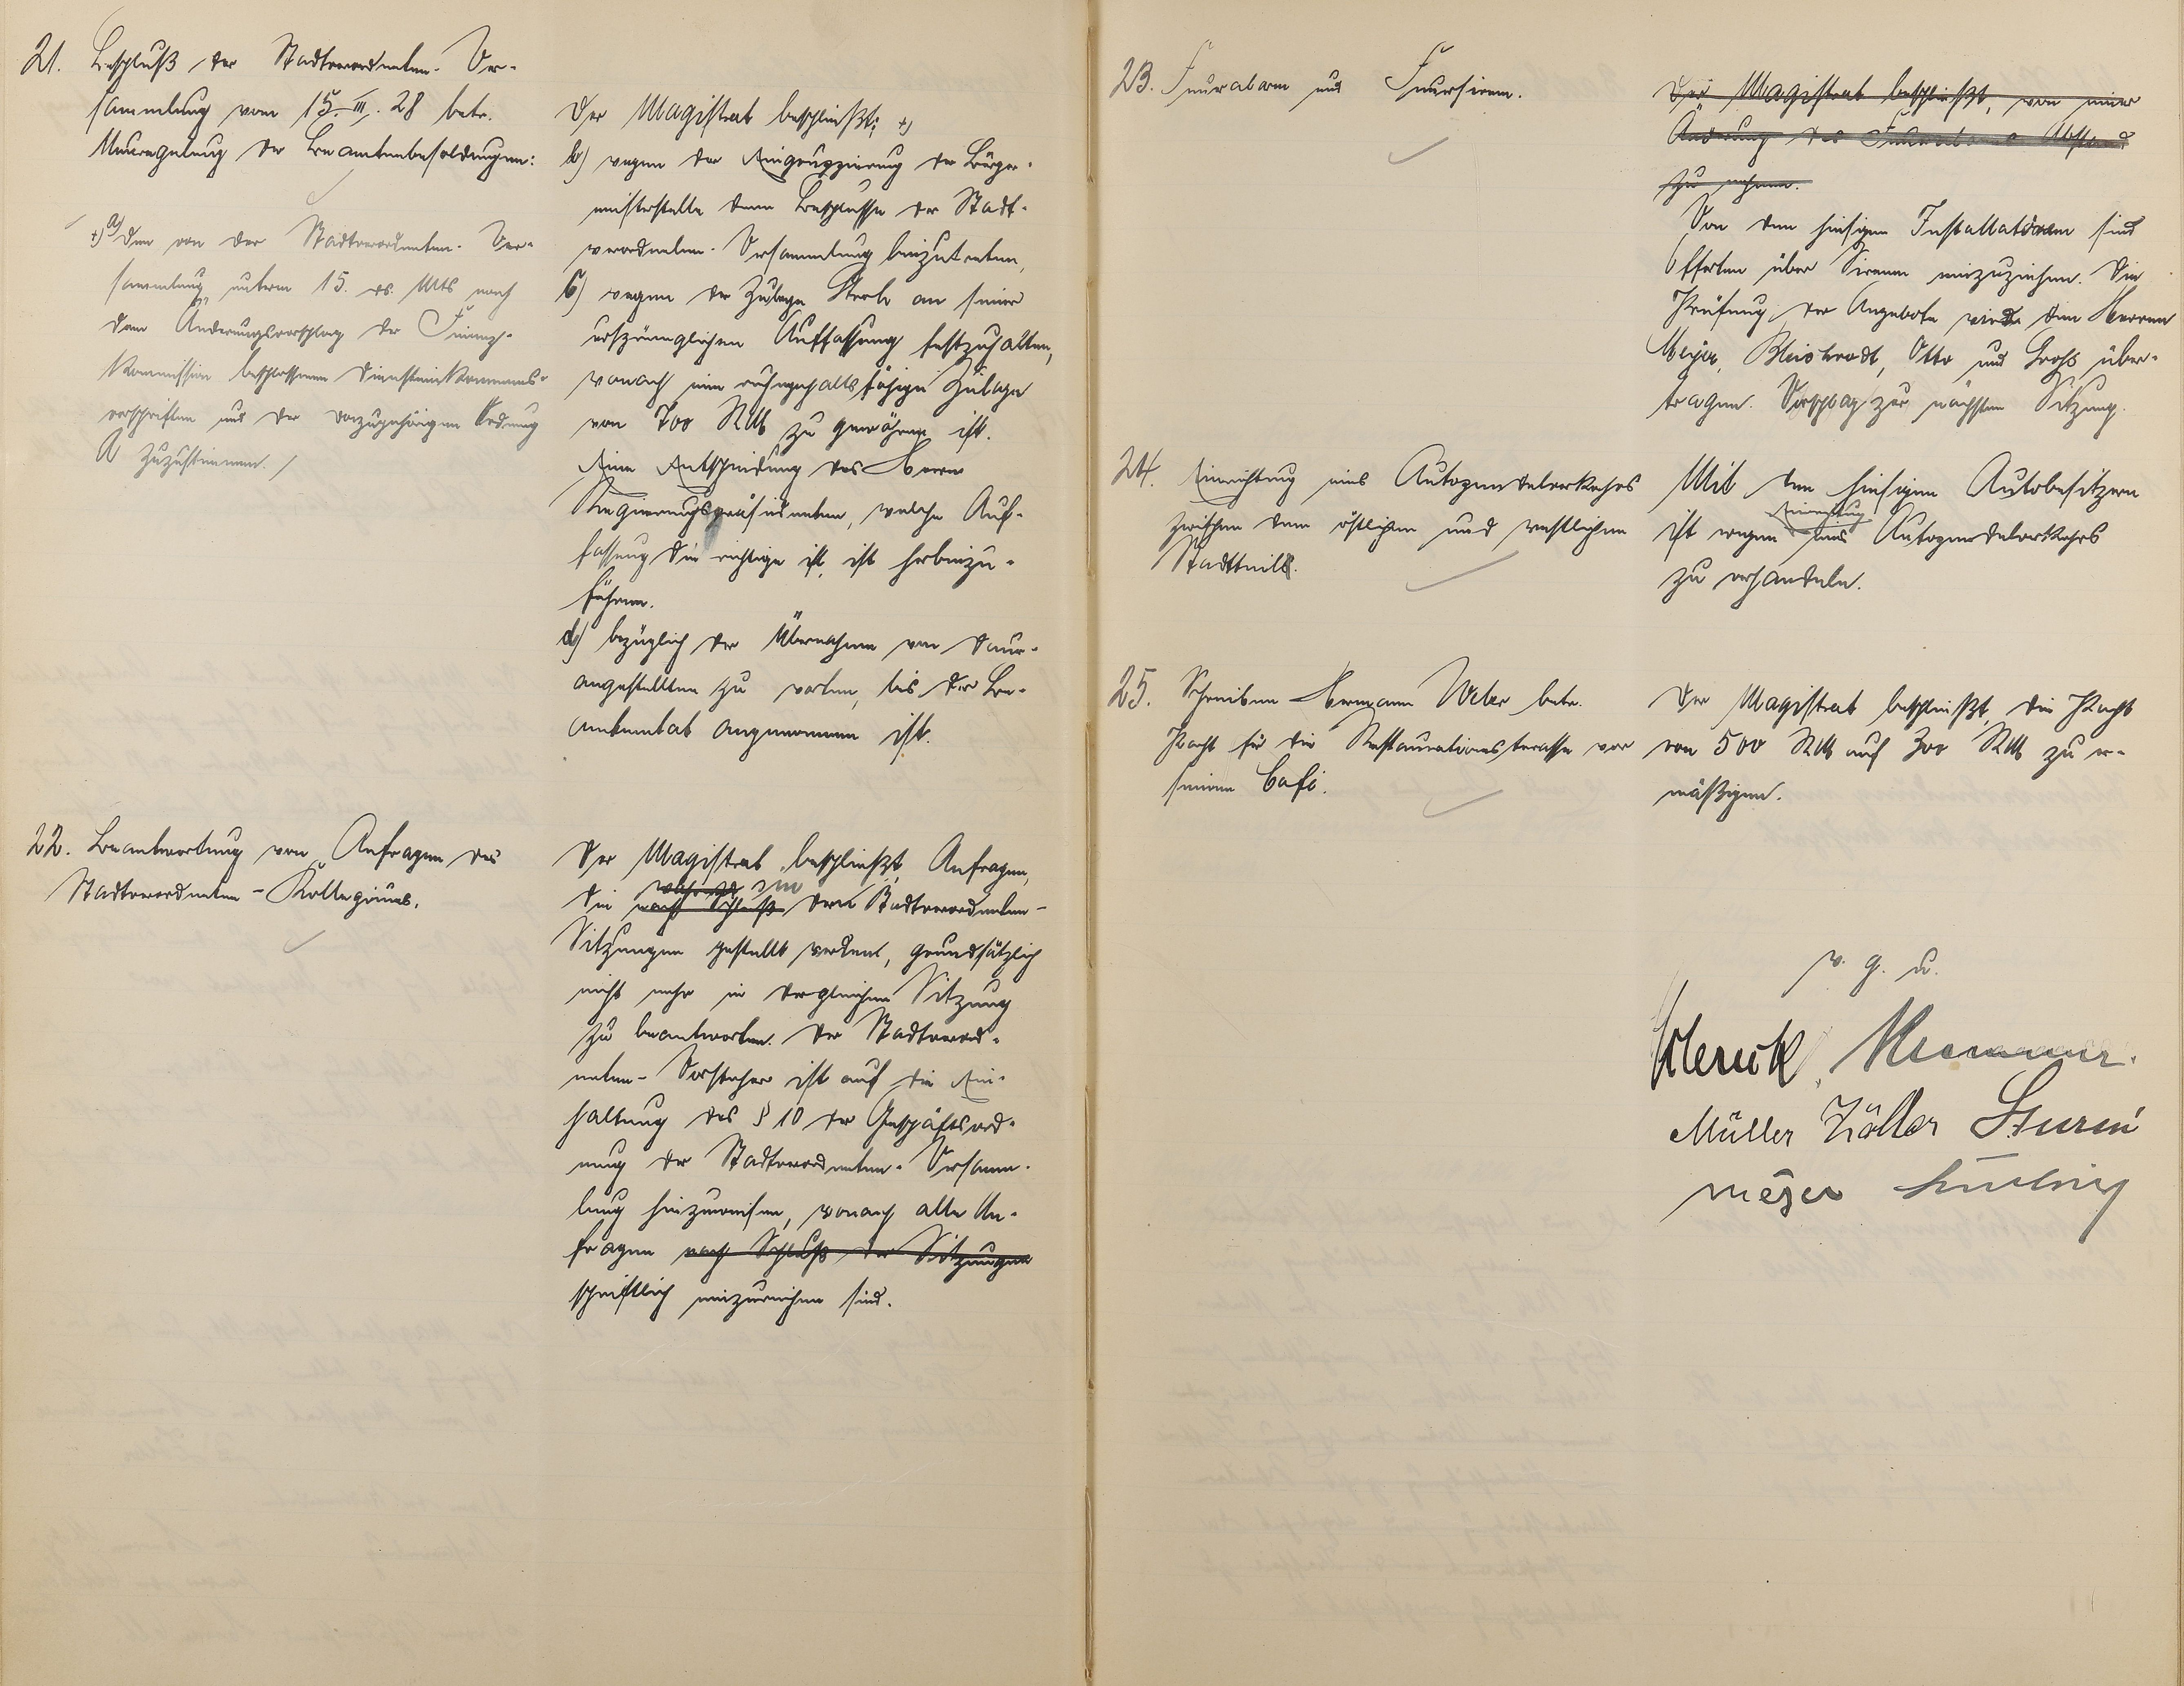 21. Beschluß der Stadtverordneten-Ver-
sammlung vom 15. III. 28 betr.
Neuregelung der Beamtenbesoldungen:
+) a) Den von der Stadtverordneten-Ver-
sammlung unterm 15. ds. Mts nach
dem Änderungsvorschlag der Finanz-
Kommission beschlossenen Diensteinkommens-
vorschriften und der dazugehörigen Ordnung
A zuzustimmen. /
Der Magistrat beschließt: +)
b) wegen der Eingruppierung der Bürger-
meisterstelle dem Beschlusse der Stadt-
verordneten-Versammlung beizutreten,
c) wegen der Zulage an seiner
ursprünglichen Auffassung festzuhalten,
wonach eine ruhegehaltsfähige Zulage
von 700 RM zu gewähren ist.
Eine Entscheidung des Herrn
Regierungspräsidenten, welche Auf-
fassung die richtige ist, ist herbeizu-
führen.
d) bezüglich der Übernahme von Dauer-
angestellten zu warten, bis der Be-
amtenetat angenommen ist.
22. Beantwortung von Anfragen des
Stadtverordneten-Kollegiums.
Der Magistrat beschließt, Anfragen,
während in
die nach Schluß den Stadtverordneten-
Sitzungen gestellt werden, grundsätzlich
nicht mehr in dergleichen Sitzung
zu beantworten. Der Stadtverord-
neten-Vorsteher ist auf die Ein-
haltung des § 10 der Geschäftsord-
nung der Stadtverordneten-Versamm-
lung hinzuweisen, wonach alle An-
fragen nach Schluß der Sitzungen
schriftlich einzureichen sind.
23. Feueralarm und Feuersirene.
Der Magistrat beschließt, von einer
Änderung des Feueralarms Abstand
zu nehmen.
Von den hiesigen Installateuren sind
Offerten über Sirenen einzuziehen. Die
Prüfung der Angebote wird den Herren
Meyer, Bleistrodt, Otto und Groß über-
tragen. Vorschlag zur nächsten Sitzung.
24. Einrichtung eines Autopendelverkehrs
zwischen dem östlichen und westlichen
Stadtteil.
Mit den hiesigen Autobesitzern
Einrichtung
ist wegen eines Autopendelverkehrs
zu verhandeln.
25. Schreiben Hermann Weber betr.
Pacht für die Restaurationsterasse vor
seinem Café.
Der Magistrat beschließt, die Pacht
von 500 RM auf 300 RM zu er-
mäßigen.
v. g. u.
Müller Zöller Sturm
Meyer